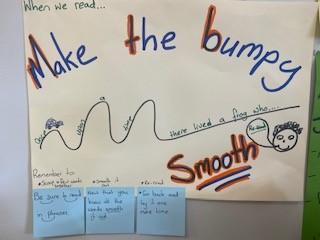 When we read...
Make the bumpy
Once upon a time there lived a frog who....
Re-read
Smooth
Remember to:
• Scoop a few words together
• Smooth it out
• Re-read
Be sure to read in phrases
Now that you know all the words smooth it out
Go back and try it one more time